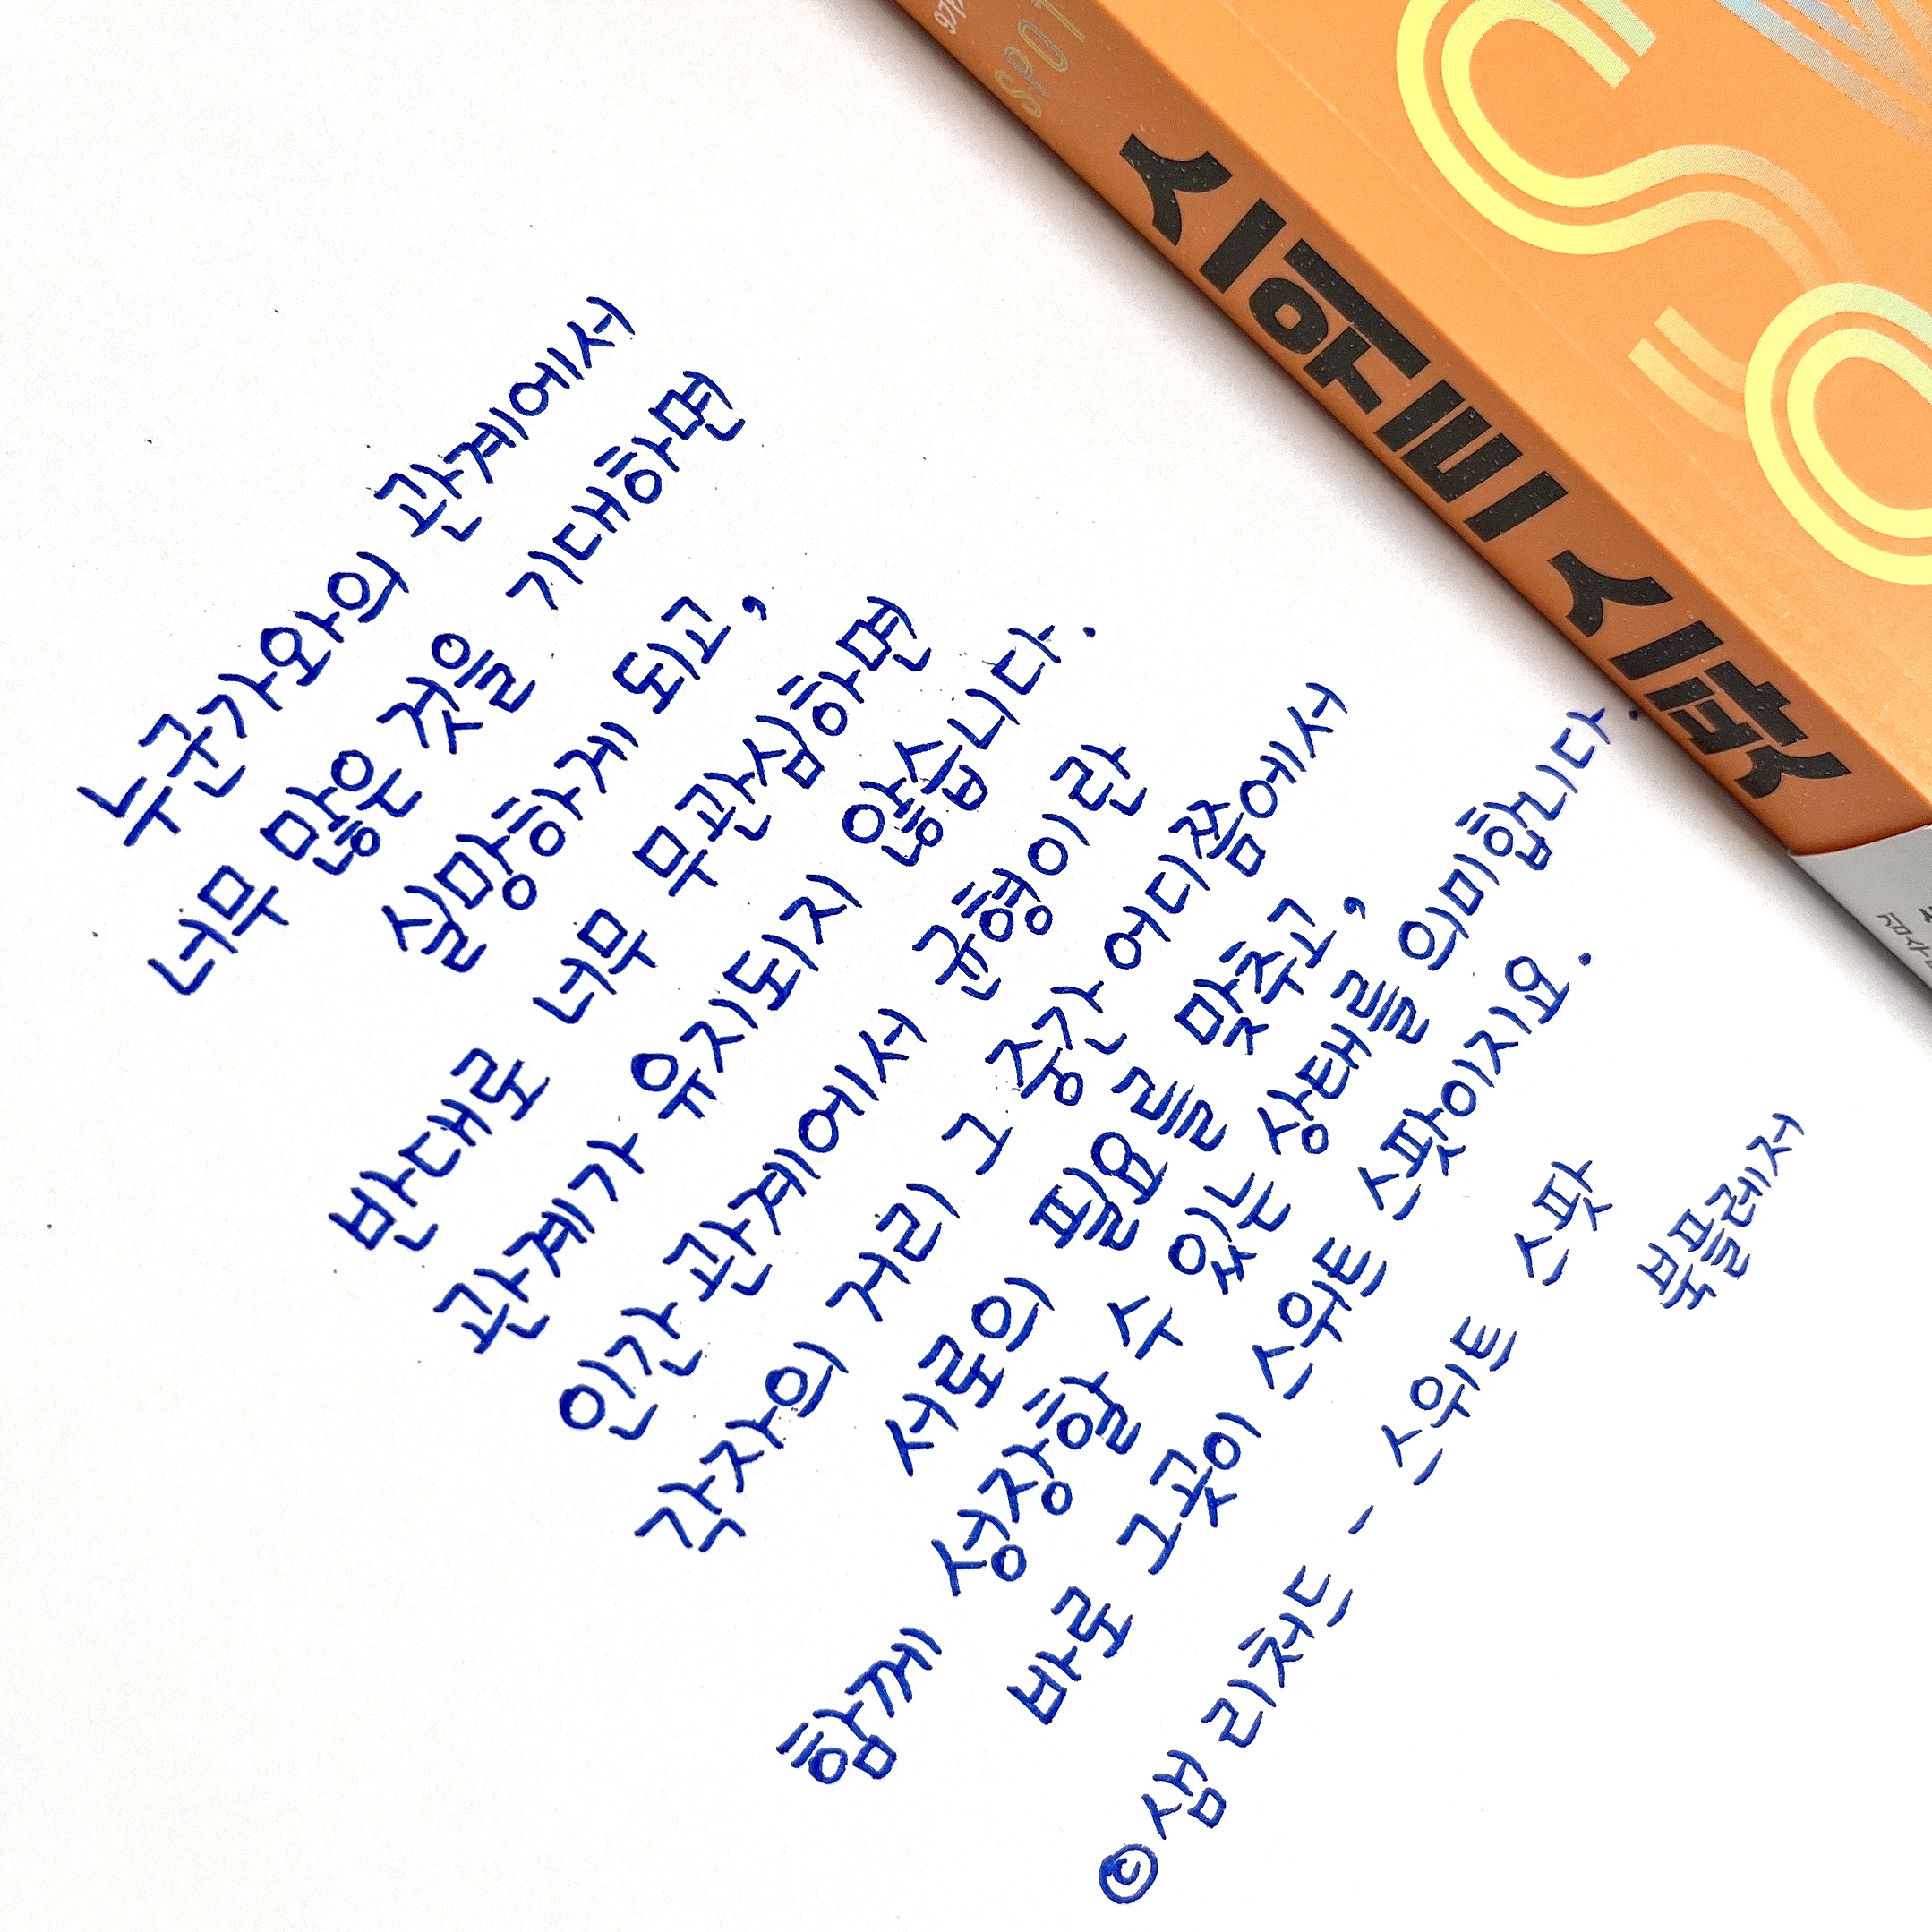 누군가와의 관계에서
너무 많은 것을 기대하면
실망하게 되고,
반대로 너무 무관심하면
관계가 유지되지 않습니다.
인간 관계에서 균형이란
각자의 거리 그 중간 어디쯤에서
서로의 필요를 맞추고,
함께 성장할 수 있는 상태를 의미합니다.
바로 그곳이 스위트 스팟이지요.
ⓒ샘 리처드 - 스위트 스팟
북플레저
SPOT
스위트 스팟